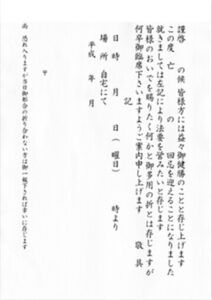 謹啓　　の候 皆様方には益々御健勝のことと存じ上げます
この度　亡　　　の　　回忌を迎えることになりました
就きましては左記により法要を営みたいと存じます
皆様のおいでを賜りたく何かと御多用の折とは存じますが
何卒御臨席下さいますようご案内申し上げます
敬具
記
日時　月　日（　曜日）　時より
場所　自宅にて
平成　年　月
〒
尚 恐れ入りますが当日御都合の折り合わない方は御一報下されば幸いに存じます